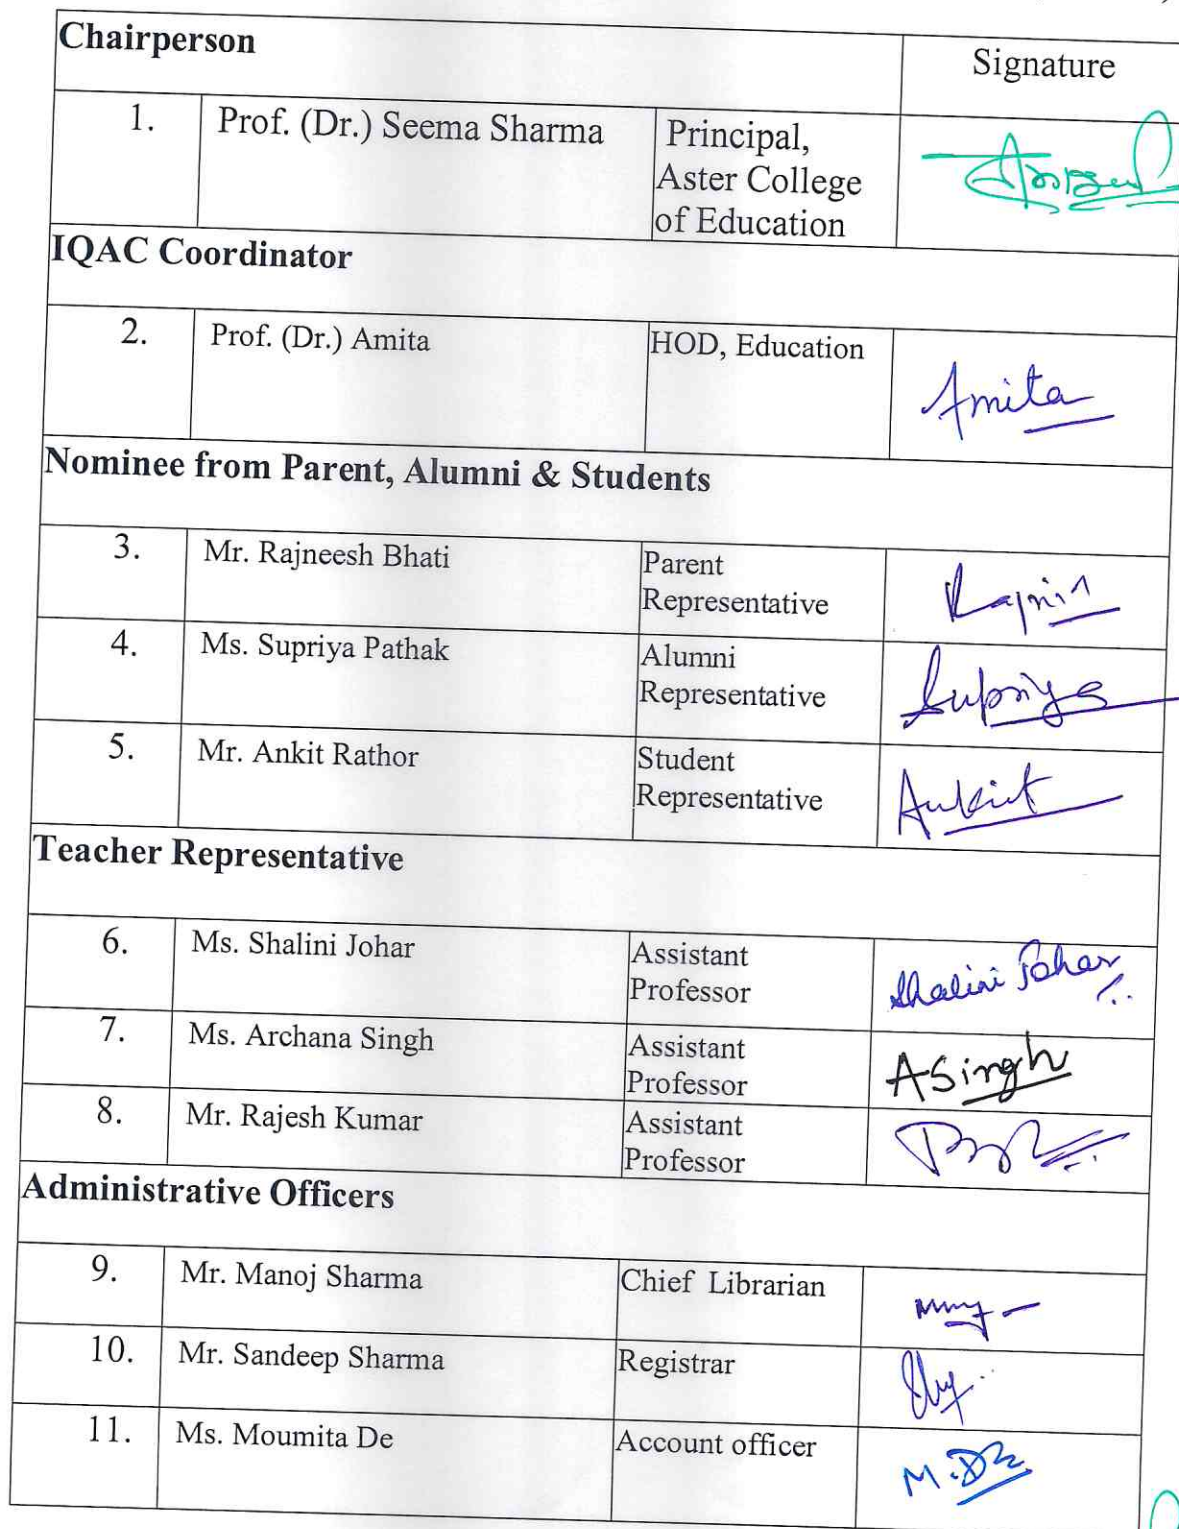 Chairperson
Signature
1. Prof. (Dr.) Seema Sharma Principal,
Aster College
of Education
IQAC Coordinator
2. Prof. (Dr.) Amita HOD, Education
Amita
Nominee from Parent, Alumni & Students
3. Mr. Rajneesh Bhati Parent
Representative
4. Ms. Supriya Pathak Alumni
Representative
Supriya
5. Mr. Ankit Rathor Student
Representative
Ankit
Teacher Representative
6. Ms. Shalini Johar Assistant
Professor
Shalini Johar
7. Ms. Archana Singh Assistant
Professor
ASingh
8. Mr. Rajesh Kumar Assistant
Professor
Administrative Officers
9. Mr. Manoj Sharma Chief Librarian
10. Mr. Sandeep Sharma Registrar
11. Ms. Moumita De Account officer
M.De